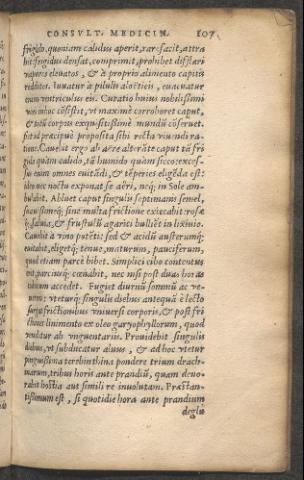 CONSVLT. MEDICIN. 107
frigido, quoniam calidus aperit, rarefacit, attra
hit: frigidus densat, comprimit, prohibet difflari
vapores eleuatos, & à proprio alimento capitis
reditos. Iuuatur à pilulis aloëticis, euacuatur
enim ventriculus eis. Curatio huius nobilissimi
viri in hoc cōsistit, vt maximè corroboret caput,
& totū corpus exquisitissimè mundū cōseruet.
fiet id præcipuè proposita sibi recta viuendi ra-
tione. Caueat ergo ab aëre alterāte caput tā fri
gido quàm calido, tā humido quàm sicco: exces-
sus enim omnes euitādi, & tēperies eligēda est:
ideo nec noctu exponat se aëri, neq; in Sole am-
bulabit. Abluet caput singulis septimanis semel,
fineq; multa frictione exiccabit: rosæ
q; saluia, & frustulū agarici bulliēt in lixiuio.
Caueat à vino potēti: sed & acidū austerumq;
euitabit, eligetq; tenue, maturum, pauciferum,
quod etiam parcè bibet. Simplici cibo contentus
erit, parciusq; cœnabit, nec nisi post duas horas
cubitum accedet. Fugiet diurnū somnū ac ve-
nerem: vtetur singulis diebus antequā è lecto
surgat frictionibus vniuersi corporis, & post fri
ctiones linimento ex oleo garyophyllorum, quod
venditur ab vnguentariis. Prouidebit singulis
diebus, vt subducatur aluus, & ad hoc vtetur
pinguissima terebinthina pondere trium drach-
marum, tribus horis ante prandiū, quam deuo-
rabit hostia aut simili re inuolutam. Præstan-
tissimum est, si quotidie hora ante prandium
deglu